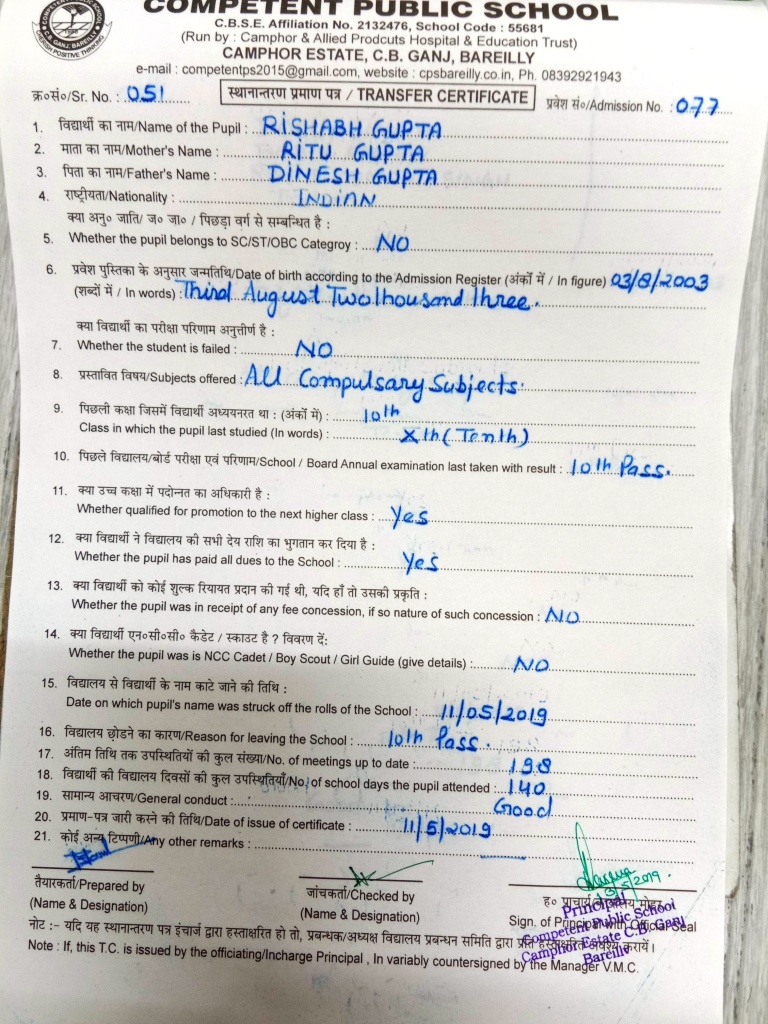 COMPETENT PUBLIC SCHOOL
C.B.S.E. Affiliation No. 2132476, School Code : 55681
(Run by : Camphor & Allied Prodcuts Hospital & Education Trust)
CAMPHOR ESTATE, C.B. GANJ, BAREILLY
e-mail : competentps2015@gmail.com, website : cpsbareilly.co.in, Ph. 08392921943
क्र०सं०/Sr. No. : 051 स्थानान्तरण प्रमाण पत्र / TRANSFER CERTIFICATE प्रवेश सं०/Admission No. : 077
1. विद्यार्थी का नाम/Name of the Pupil : RISHABH GUPTA
2. माता का नाम/Mother's Name : RITU GUPTA
3. पिता का नाम/Father's Name : DINESH GUPTA
4. राष्ट्रीयता/Nationality : INDIAN
क्या अनु० जाति/ ज० जा० / पिछड़ा वर्ग से सम्बन्धित है :
5. Whether the pupil belongs to SC/ST/OBC Categroy : NO
6. प्रवेश पुस्तिका के अनुसार जन्मतिथि/Date of birth according to the Admission Register (अंकों में / In figure) 03/8/2003
(शब्दों में / In words) : Third August Two thousand three.
क्या विद्यार्थी का परीक्षा परिणाम अनुत्तीर्ण है :
7. Whether the student is failed : NO
8. प्रस्तावित विषय/Subjects offered : All Compulsary Subjects.
9. पिछली कक्षा जिसमें विद्यार्थी अध्ययनरत था : (अंकों में) : 10th
Class in which the pupil last studied (In words) : Xth (Tenth)
10. पिछले विद्यालय/बोर्ड परीक्षा एवं परिणाम/School / Board Annual examination last taken with result : 10th Pass.
11. क्या उच्च कक्षा में पदोन्नत का अधिकारी है :
Whether qualified for promotion to the next higher class : Yes
12. क्या विद्यार्थी ने विद्यालय की सभी देय राशि का भुगतान कर दिया है :
Whether the pupil has paid all dues to the School : Yes
13. क्या विद्यार्थी को कोई शुल्क रियायत प्रदान की गई थी, यदि हाँ तो उसकी प्रकृति :
Whether the pupil was in receipt of any fee concession, if so nature of such concession : NO
14. क्या विद्यार्थी एन०सी०सी० कैडेट / स्काउट है ? विवरण दें:
Whether the pupil was is NCC Cadet / Boy Scout / Girl Guide (give details) : NO
15. विद्यालय से विद्यार्थी के नाम काटे जाने की तिथि :
Date on which pupil's name was struck off the rolls of the School : 11/05/2019
16. विद्यालय छोडने का कारण/Reason for leaving the School : 10th Pass.
17. अंतिम तिथि तक उपस्थितियों की कुल संख्या/No. of meetings up to date : 198
18. विद्यार्थी की विद्यालय दिवसों की कुल उपस्थितियाँ/No. of school days the pupil attended : 140
19. सामान्य आचरण/General conduct : Good
20. प्रमाण-पत्र जारी करने की तिथि/Date of issue of certificate : 11/5/2019
21. कोई अन्य टिप्पणी/Any other remarks :
तैयारकर्ता/Prepared by
(Name & Designation)
जांचकर्ता/Checked by
(Name & Designation)
ह० प्राचार्य
Sign. of Principal with Official Seal
Principal
Competent Public School
Camphor Estate C.B. GANJ
Bareilly
नोट :- यदि यह स्थानान्तरण पत्र इंचार्ज द्वारा हस्ताक्षरित हो तो, प्रबन्धक/अध्यक्ष विद्यालय प्रबन्धन समिति द्वारा प्रति हस्ताक्षरित अवश्य करायें।
Note : If, this T.C. is issued by the officiating/Incharge Principal , In variably countersigned by the Manager V.M.C.